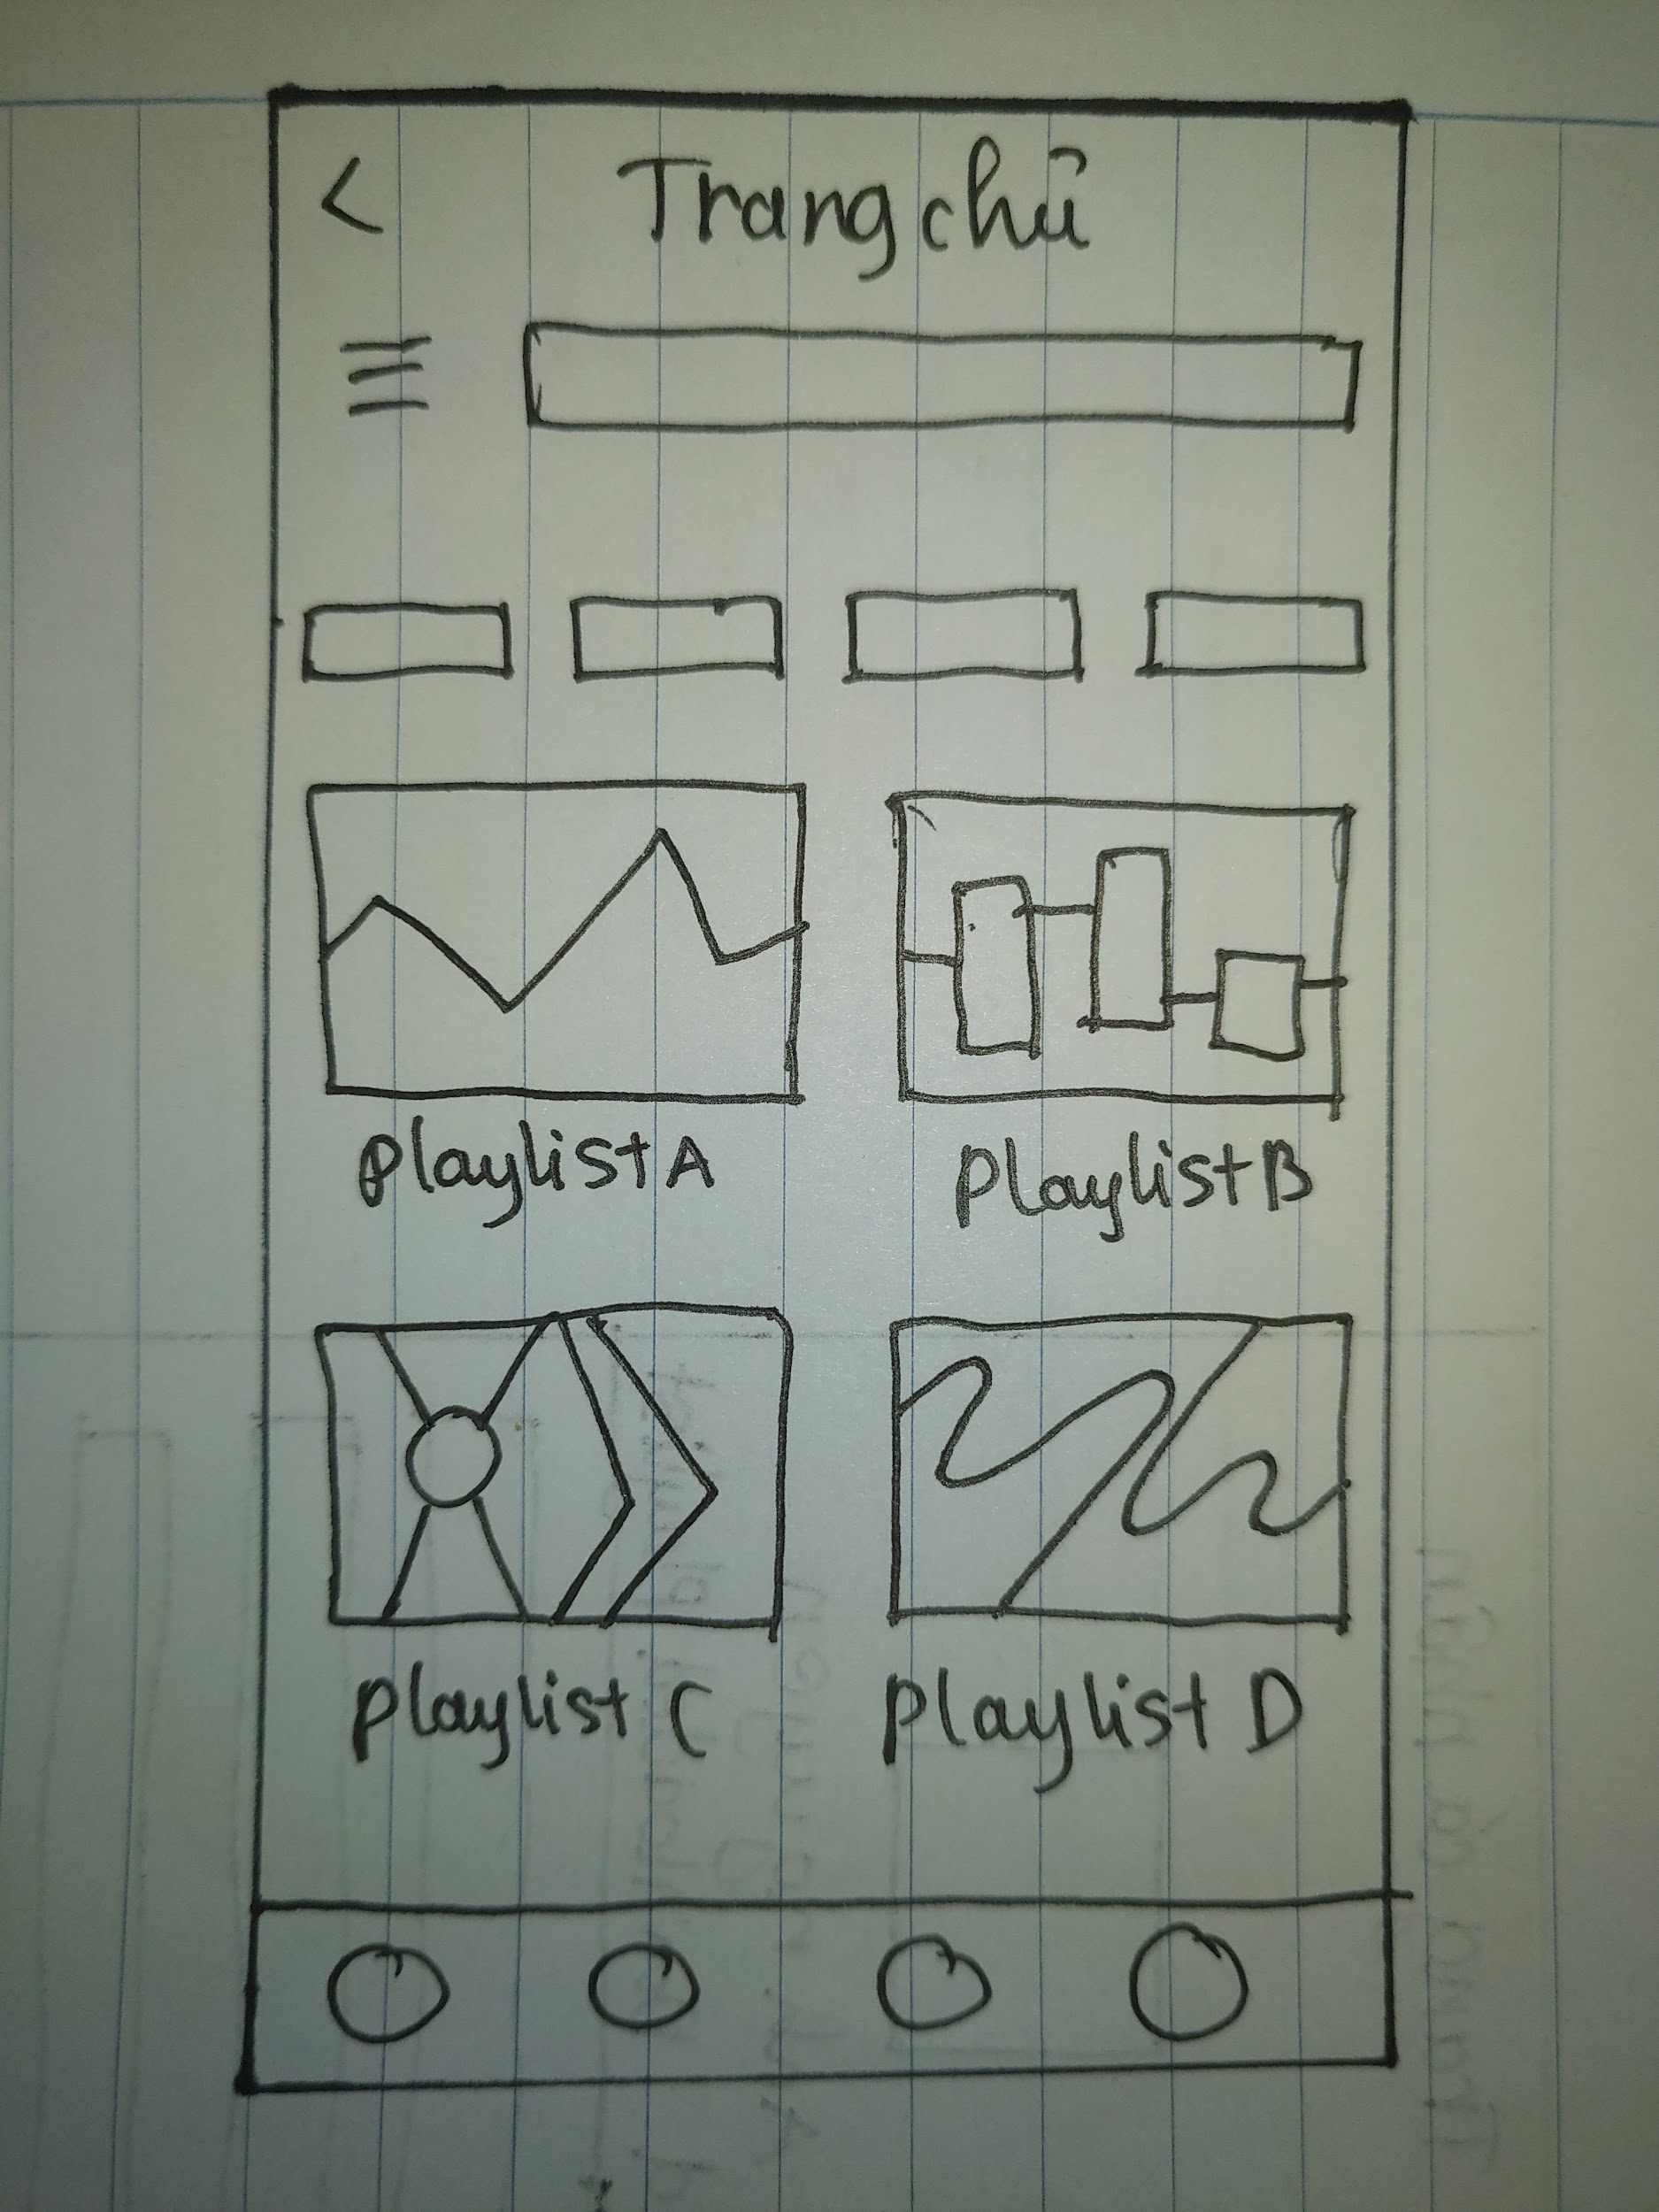 < Trang chủ
Playlist A
Playlist B
Playlist C
Playlist D